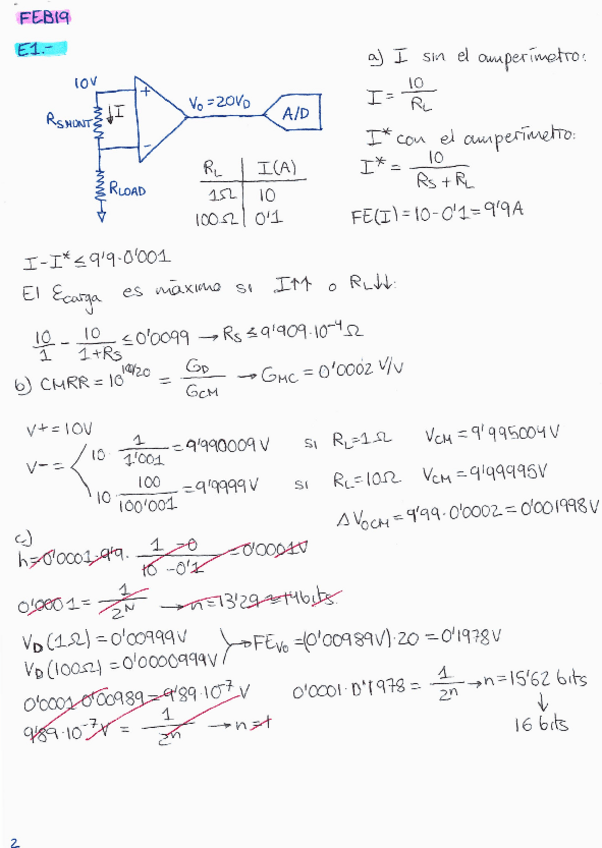 FEB19
E1.-
10V
+
I
RSHUNT
-
Vo=20VD
A/D
RLOAD
RL | I(A)
1Ω | 10
100Ω | 0'1
a) I sin el amperímetro:
I = 10/RL
I* con el amperímetro:
I* = 10/(RS+RL)
FE(I)=10-0'1=9'9A
I-I* ≤ 9'9·0'001
El Ecarga es máximo si I↑↑ o RL↓↓:
10/1 - 10/(1+RS) ≤ 0'0099 → RS ≤ 9'909·10⁻⁴ Ω
b) CMRR = 10^(100/20) = GD/GCM → GMC = 0'0002 V/V
V+ = 10V
V- = 10· 1/1'001 = 9'990009V si RL=1Ω VCM = 9'995004V
10 · 100/100'001 = 9'9999V si RL=10Ω VCM = 9'99995V
ΔVOCM = 9'99·0'0002 = 0'001998V
c)
h=0'0001·9'9· (1-0)/(10-0'1) = 0'0001V
0'0001 = 1/2^N → n=13'29=14bits.
VD(1Ω) = 0'00999V
VD(100Ω) = 0'0000999V
FEVo = (0'00989V)·20 = 0'1978V
0'0001·0'00989 = 9'89·10⁻⁷ V
0'0001·0'1978 = 1/2^n → n=15'62 bits
↓
16 bits
9'89·10⁻⁷V = 1/2^n → n=1
2